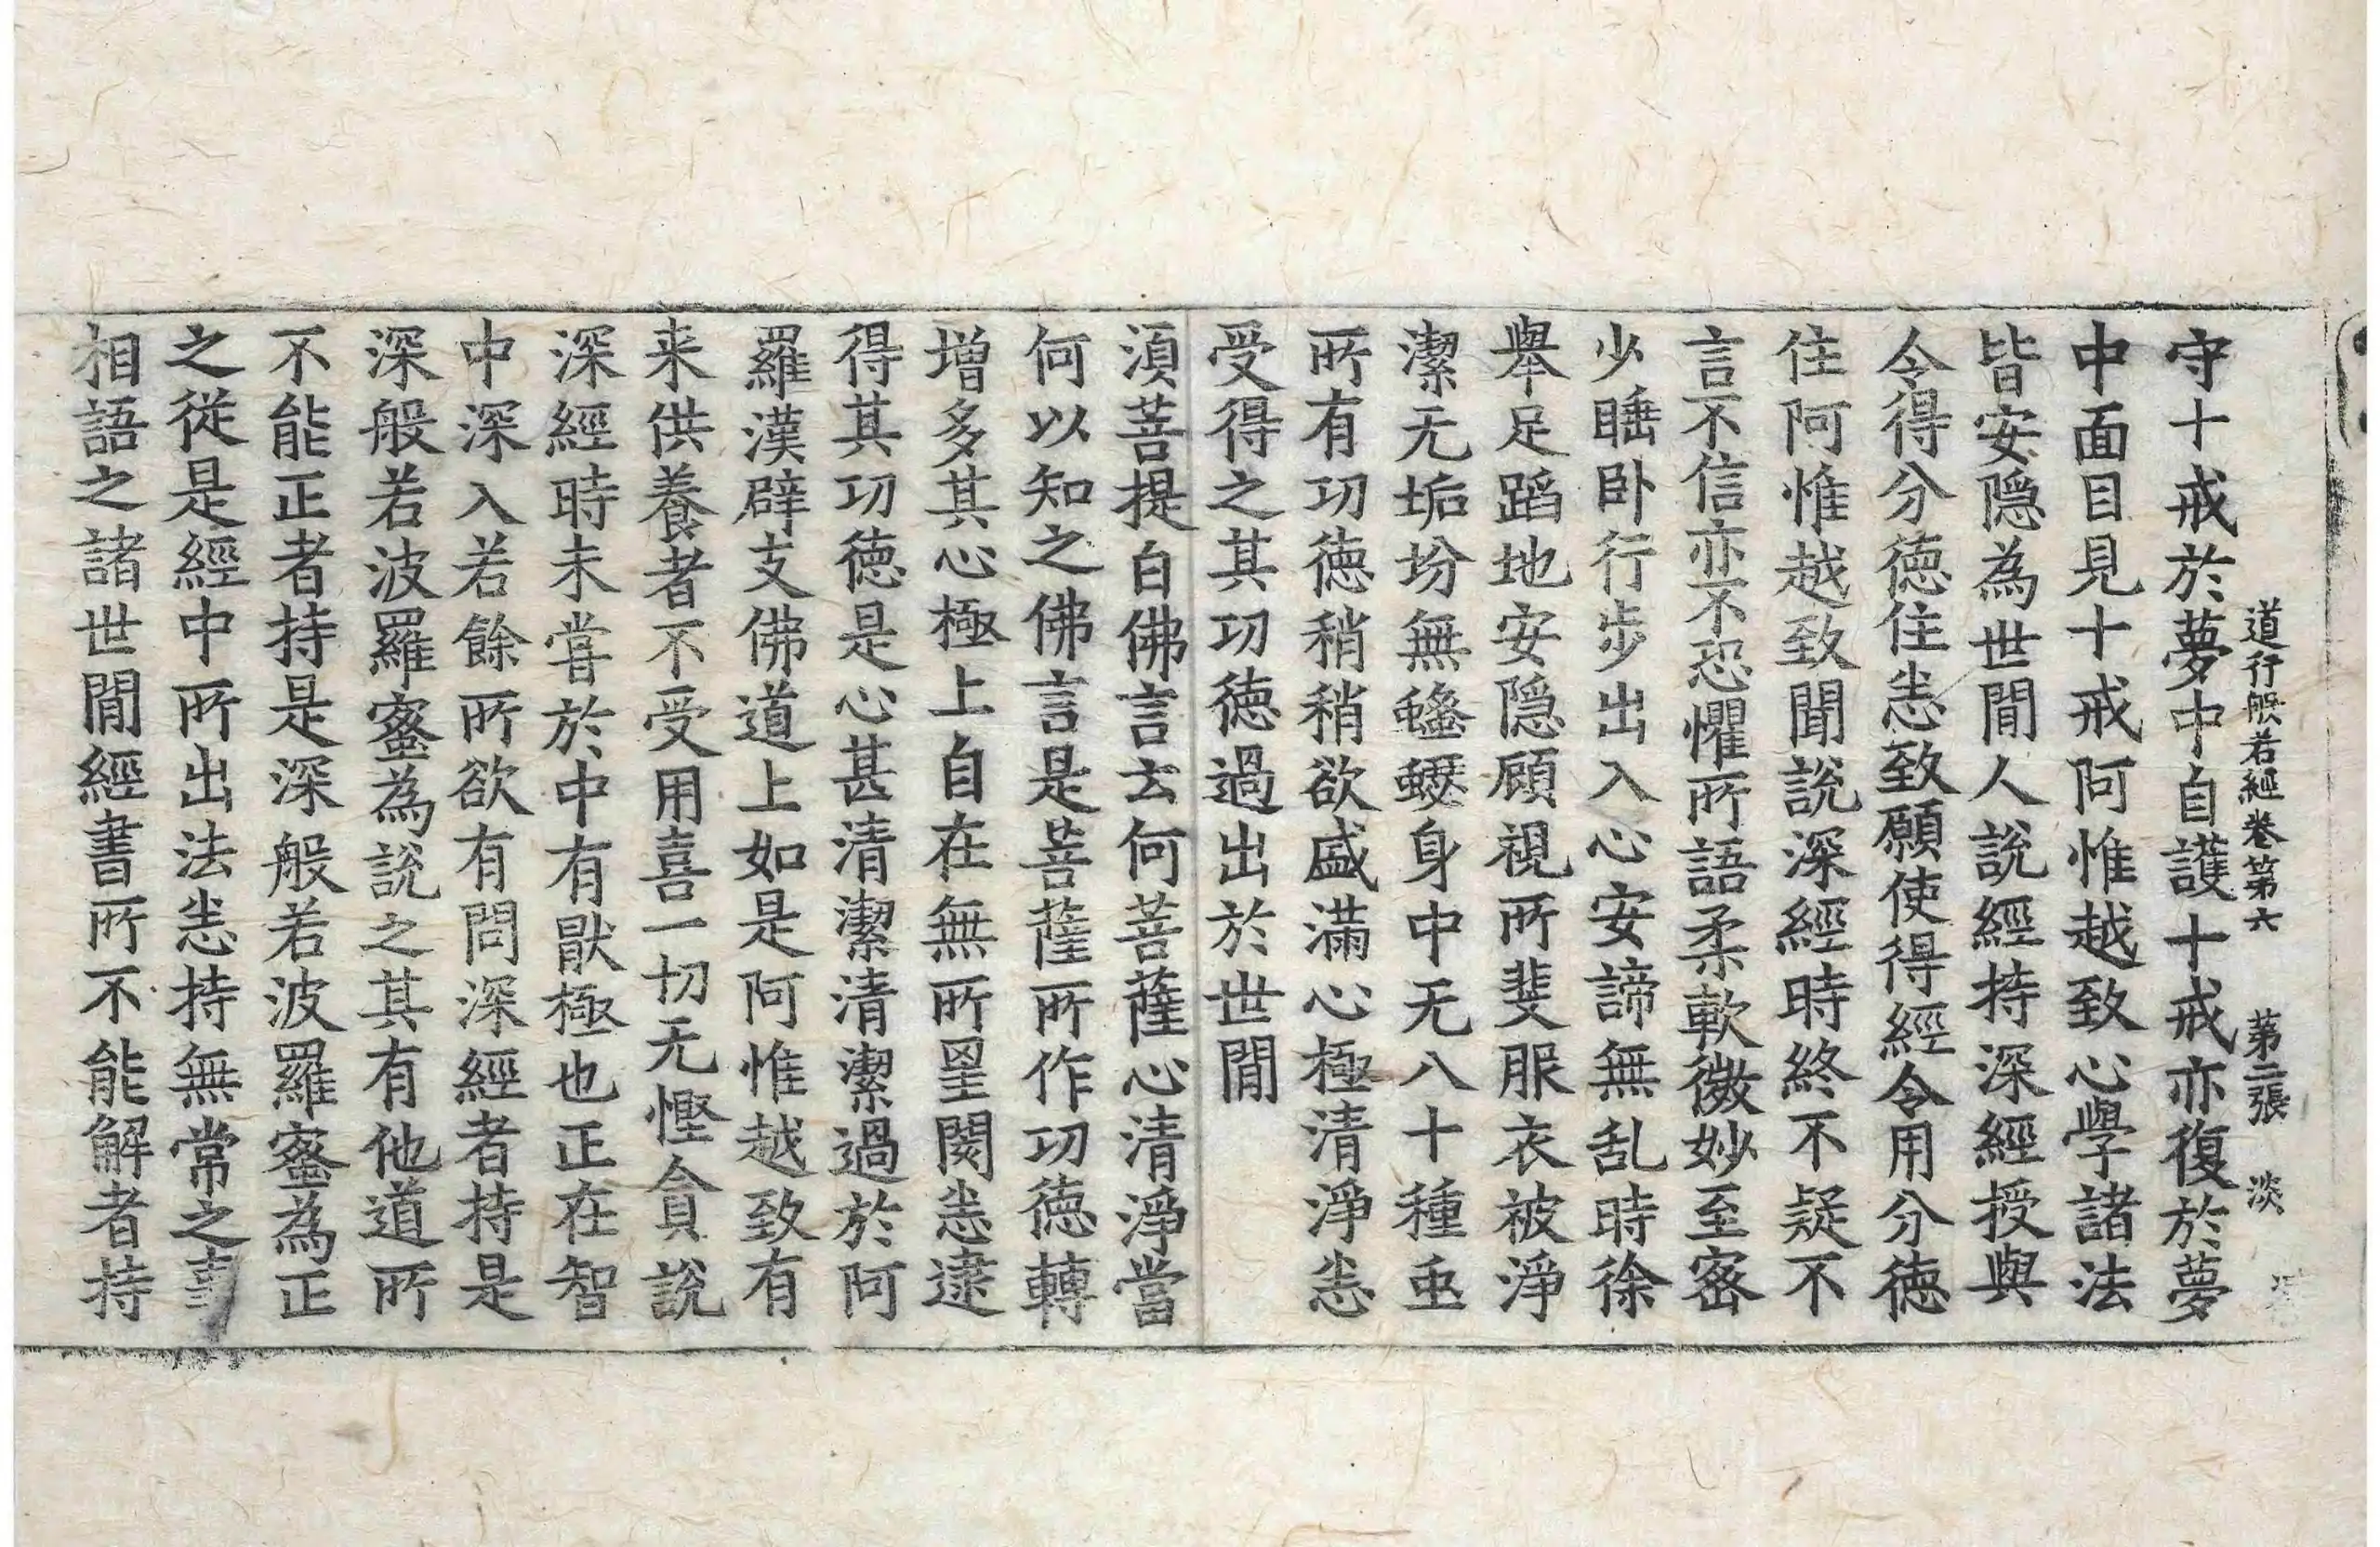 道行般若經卷第六 第二張 淡
守十戒於夢中自護十戒亦復於夢
中面目見十戒阿惟越致心學諸法
皆安隱為世閒人說經持深經授與
令得分德住恙致願使得經令用分德
住阿惟越致聞說深經時終不疑不
言不信亦不恐懼所語柔軟微妙至密
少睡卧行步出入心安諦無乱時徐
舉足蹈地安隱顧視所斐服衣被淨
潔无垢坋無蟣蝨身中无八十種䖝
所有功德稍稍欲盛滿心極清淨恙
受得之其功德過出於世閒
湏菩提白佛言云何菩薩心清淨當
何以知之佛言是菩薩所作功德轉
增多其心極上自在無所罣閡恙逮
得其功德是心甚清潔清潔過於阿
羅漢辟支佛道上如是阿惟越致有
来供養者不受用喜一切无慳貪說
深經時未甞於中有猒極也正在智
中深入若餘所欲有問深經者持是
深般若波羅蜜為說之其有他道所
不能正者持是深般若波羅蜜為正
之從是經中所出法恙持無常之事
相語之諸世閒經書所不能解者持